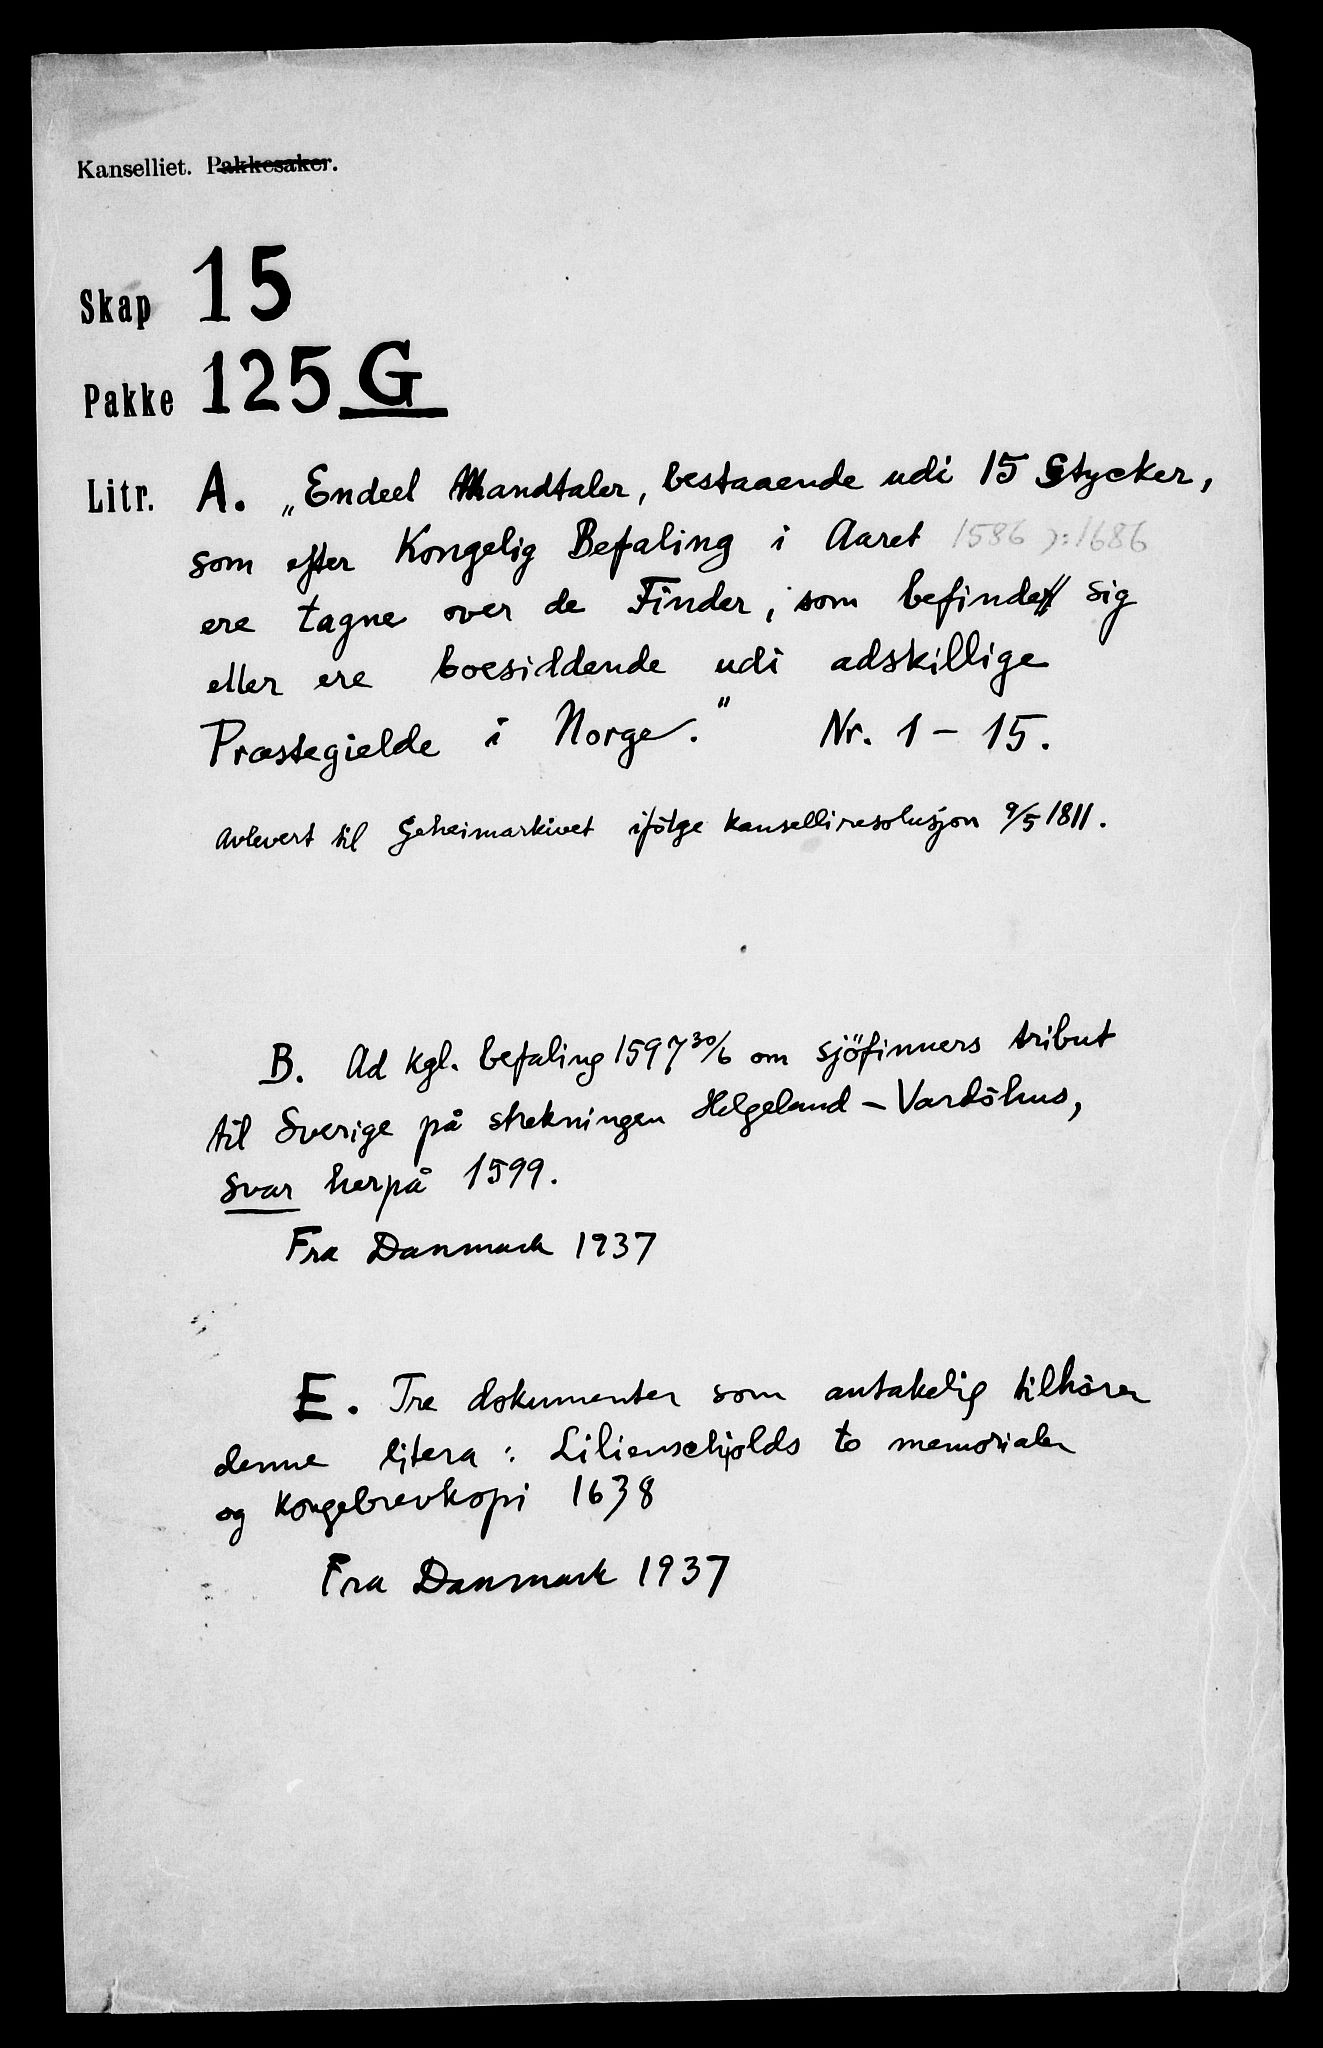 Kanselliet. Pakkesaker.
Skap 15
Pakke 125 G
Litr. A. „Endeel Mandtaler, bestaaende udi 15 Stycker,
som efter Kongelig Befaling i Aaret 1586 ɔ: 1686
ere tagne over de Finder, som befinder sig
eller ere boesiddende udi adskillige
Præstegielde i Norge." Nr. 1 – 15.
Avlevert til Geheimarkivet ifölge kanselliresolusjon 9/5 1811.
B. Ad kgl. befaling 1597 30/6 om sjöfinners tribut
til Sverige på strekningen Helgeland – Vardöhus,
Svar herpå 1599.
Fra Danmark 1937
E. Tre dokumenter som antakelig tilhörer
denne litera : Lilienschjolds to memorialer
og Kongebrevkopi 1638
Fra Danmark 1937